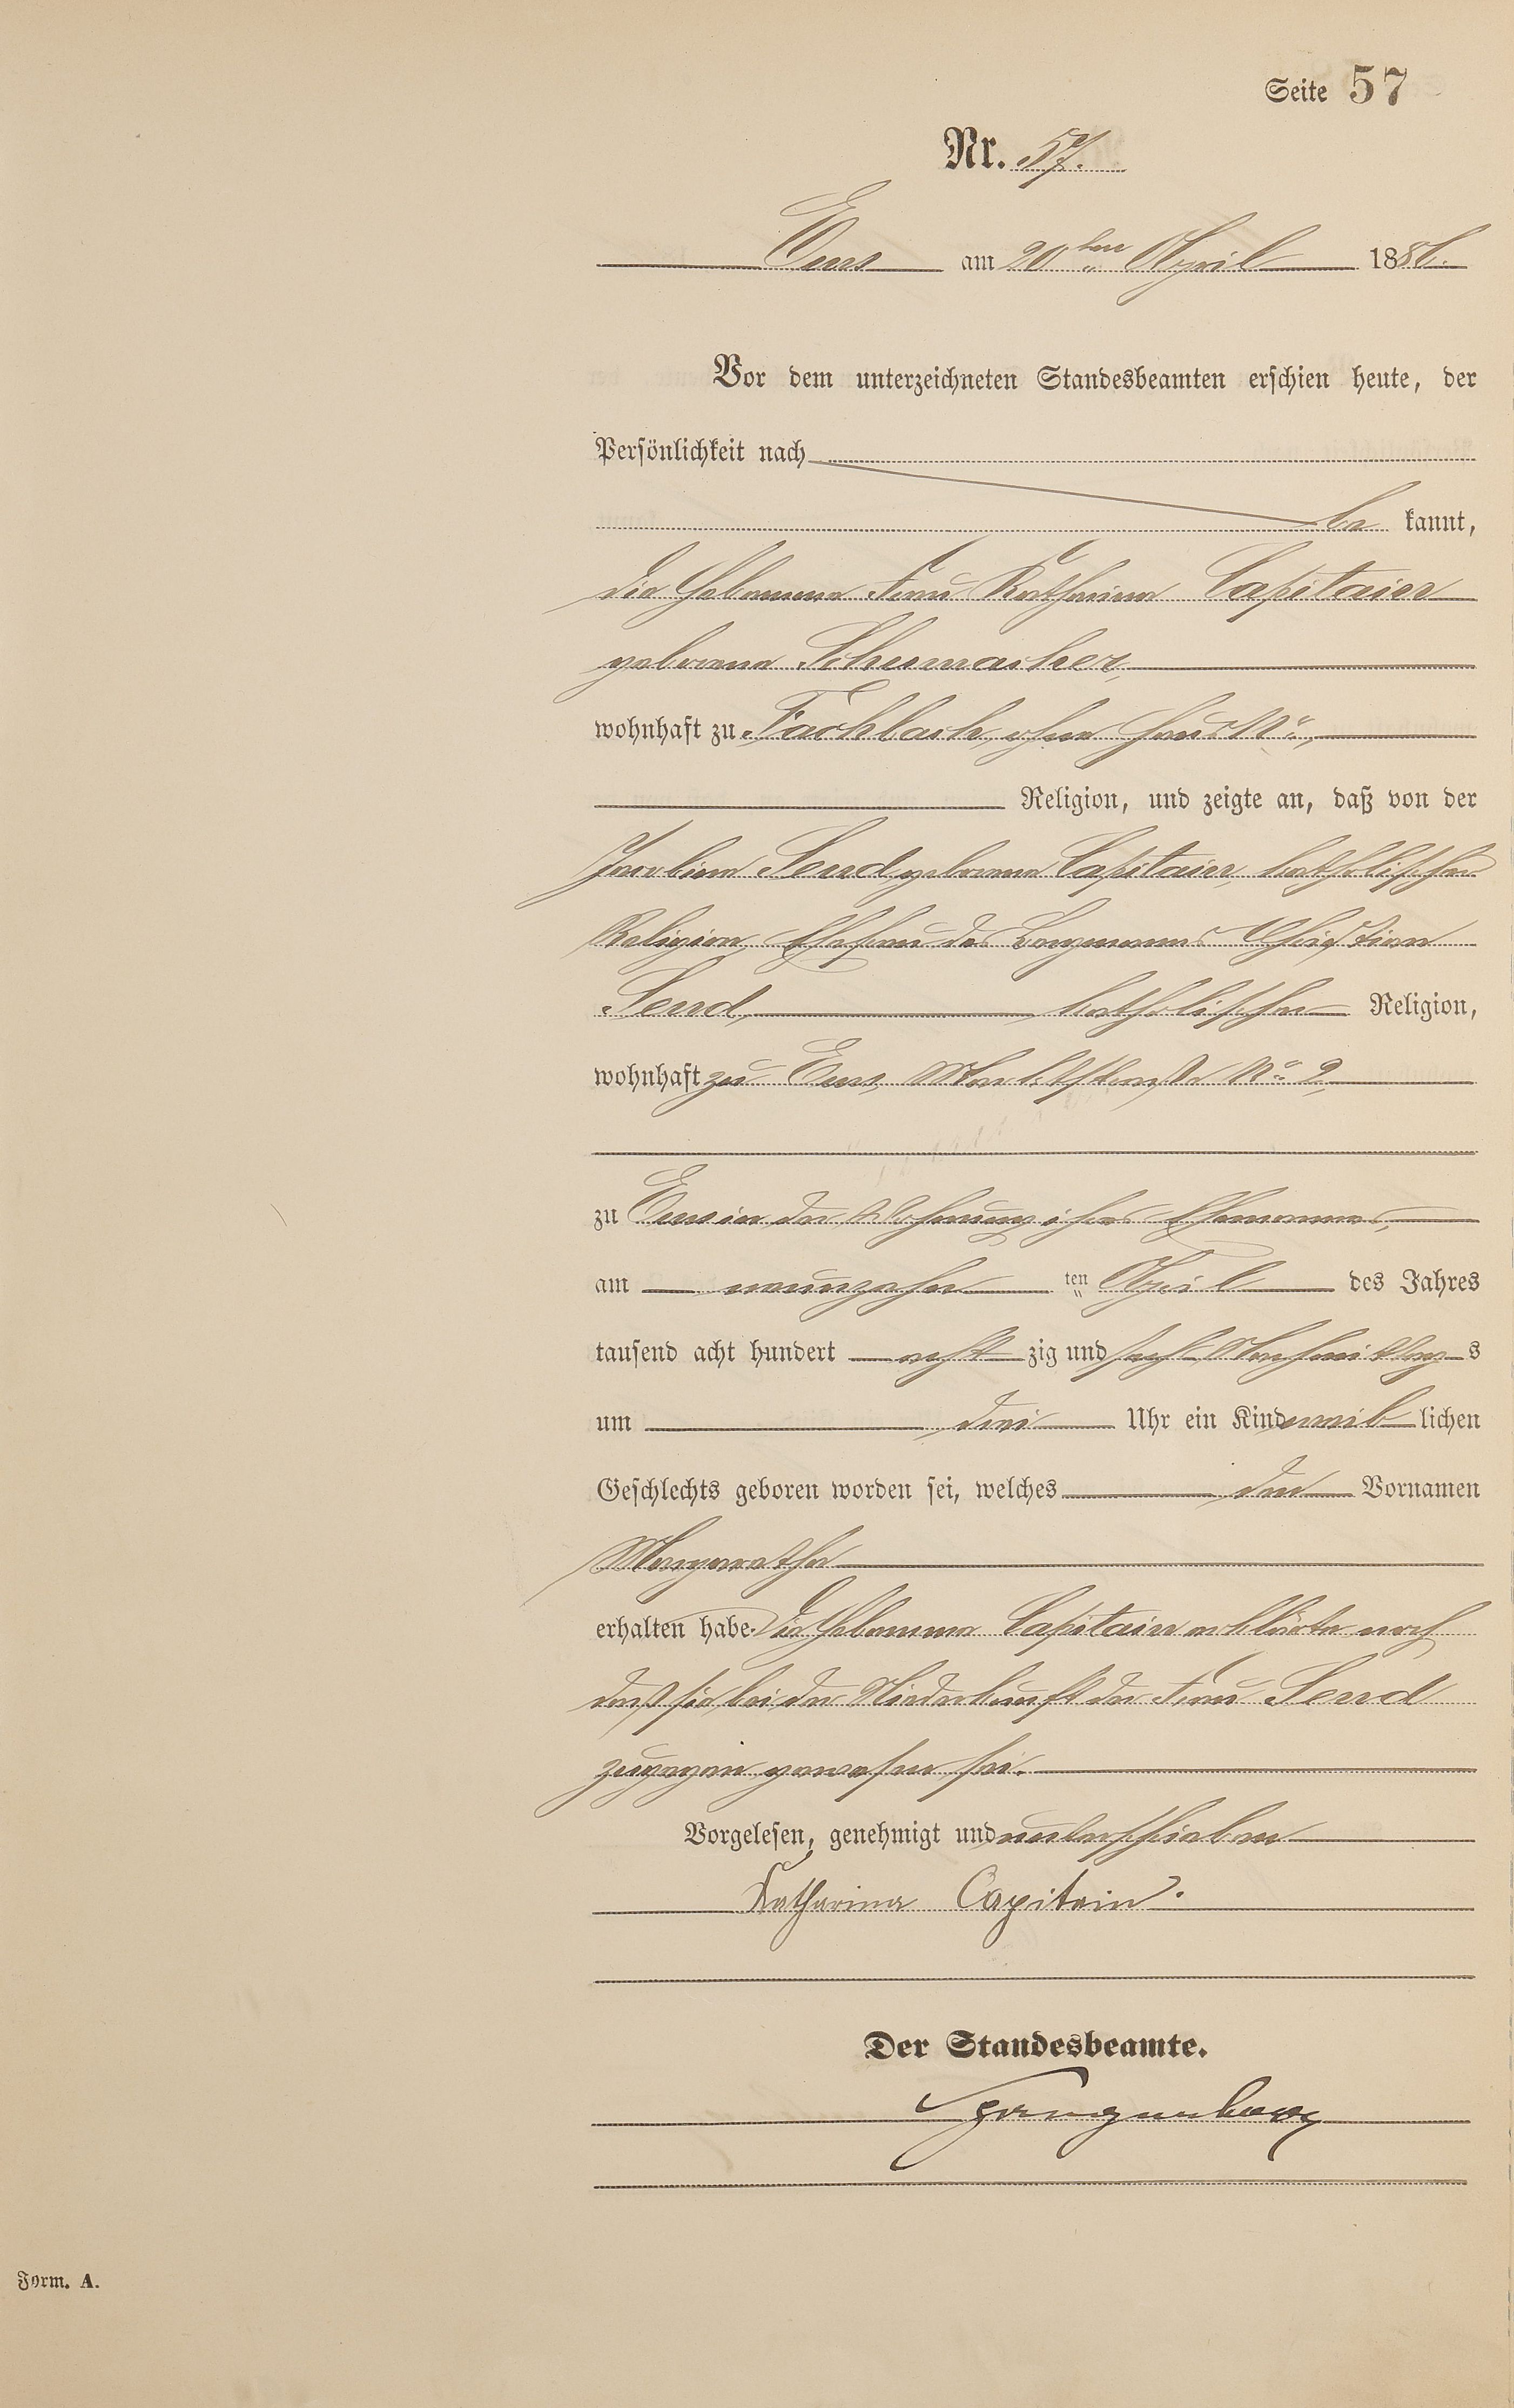 Seite 57
Nr. 57.
Ems am 20ten April 1886.
Vor dem unterzeichneten Standesbeamten erschien heute, der
Persönlichkeit nach
be kannt,
die Hebamme Frau Katharina Capitain
geborene Schumacher,
wohnhaft zu Fachbach, ohne Haus No.,
Religion, und zeigte an, daß von der
Jacobina Send geborene Capitain, katholischer
Religion, Ehefrau des Bergmanns Christian
Send, katholischer Religion,
wohnhaft zu Ems, Marktstraße No. 2,
zu Ems in der Wohnung ihres Ehemannes,
am neunzehn ten April des Jahres
tausend acht hundert acht zig und sechs Nachmittag s
um drei Uhr ein Kind weib lichen
Geschlechts geboren worden sei, welches den Vornamen
Margaretha
erhalten habe. Die Hebamme Capitain erklärte noch,
daß sie bei der Niederkunft der Frau Send
zugegen gewesen sei.
Vorgelesen, genehmigt und unterschrieben
Katharina Capitain.
Der Standesbeamte.
Spangenberg
Form. A.